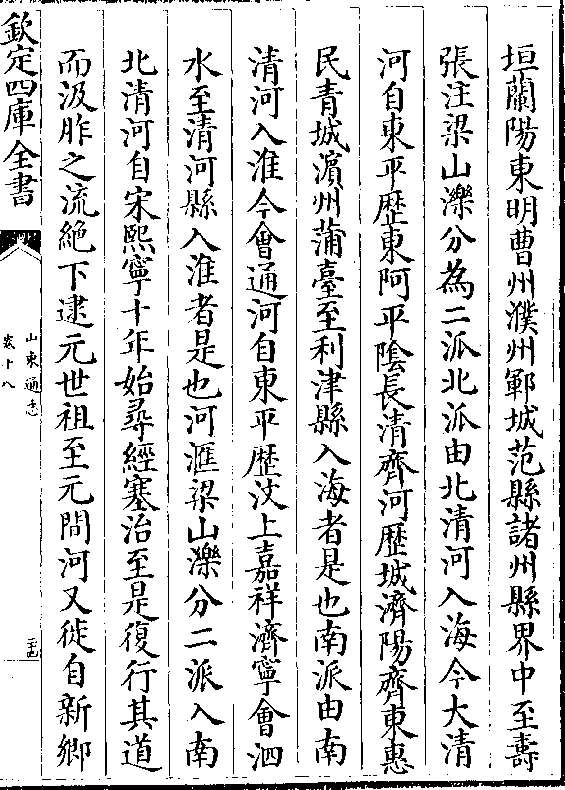 垣蘭陽東明曹州濮州鄆城范縣諸州縣界中至壽
張注梁山濼分為二派北派由北清河入海今大清
河自東平歴東阿平陰長清齊河歴城濟陽齊東惠
民青城濱州蒲臺至利津縣入海者是也南派由南
清河入淮今會通河自東平歴汶上嘉祥濟寧會泗
水至清河縣入淮者是也河滙梁山濼分二派入南
北清河自宋熙寧十年始尋經塞治至是復行其道
而汲胙之流絶下逮元世祖至元間河又徙自新鄉
欽定四庫全書
山東通志
卷十八